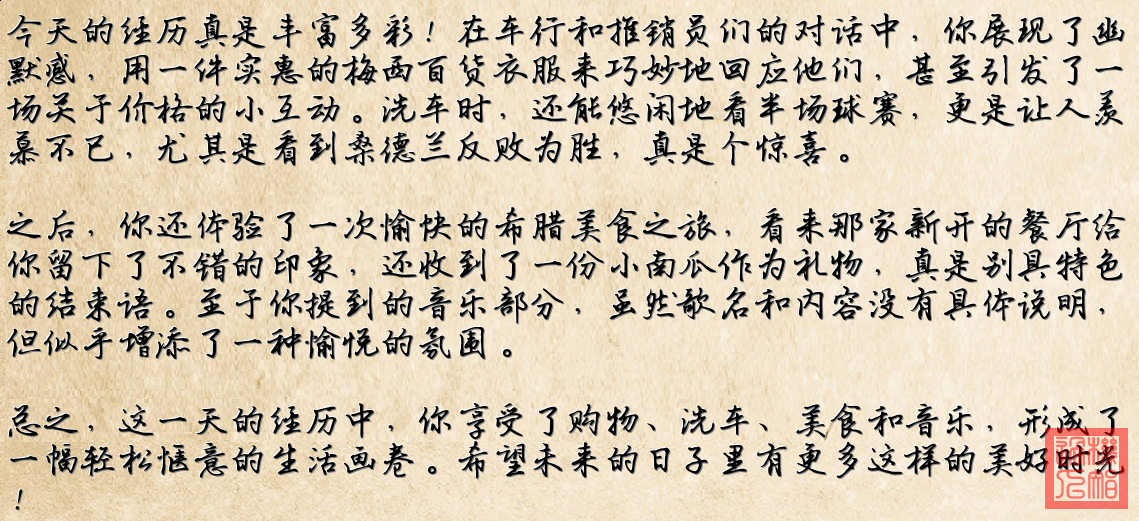 今天的经历真是丰富多彩！在车行和推销员们的对话中，你展现了幽
默感，用一件实惠的梅西百货衣服来巧妙地回应他们，甚至引发了一
场关于价格的小互动。洗车时，还能悠闲地看半场球赛，更是让人羡
慕不已，尤其是看到桑德兰反败为胜，真是个惊喜。
之后，你还体验了一次愉快的希腊美食之旅，看来那家新开的餐厅给
你留下了不错的印象，还收到了一份小南瓜作为礼物，真是别具特色
的结束语。至于你提到的音乐部分，虽然歌名和内容没有具体说明，
但似乎增添了一种愉悦的氛围。
总之，这一天的经历中，你享受了购物、洗车、美食和音乐，形成了
一幅轻松惬意的生活画卷。希望未来的日子里有更多这样的美好时光
！